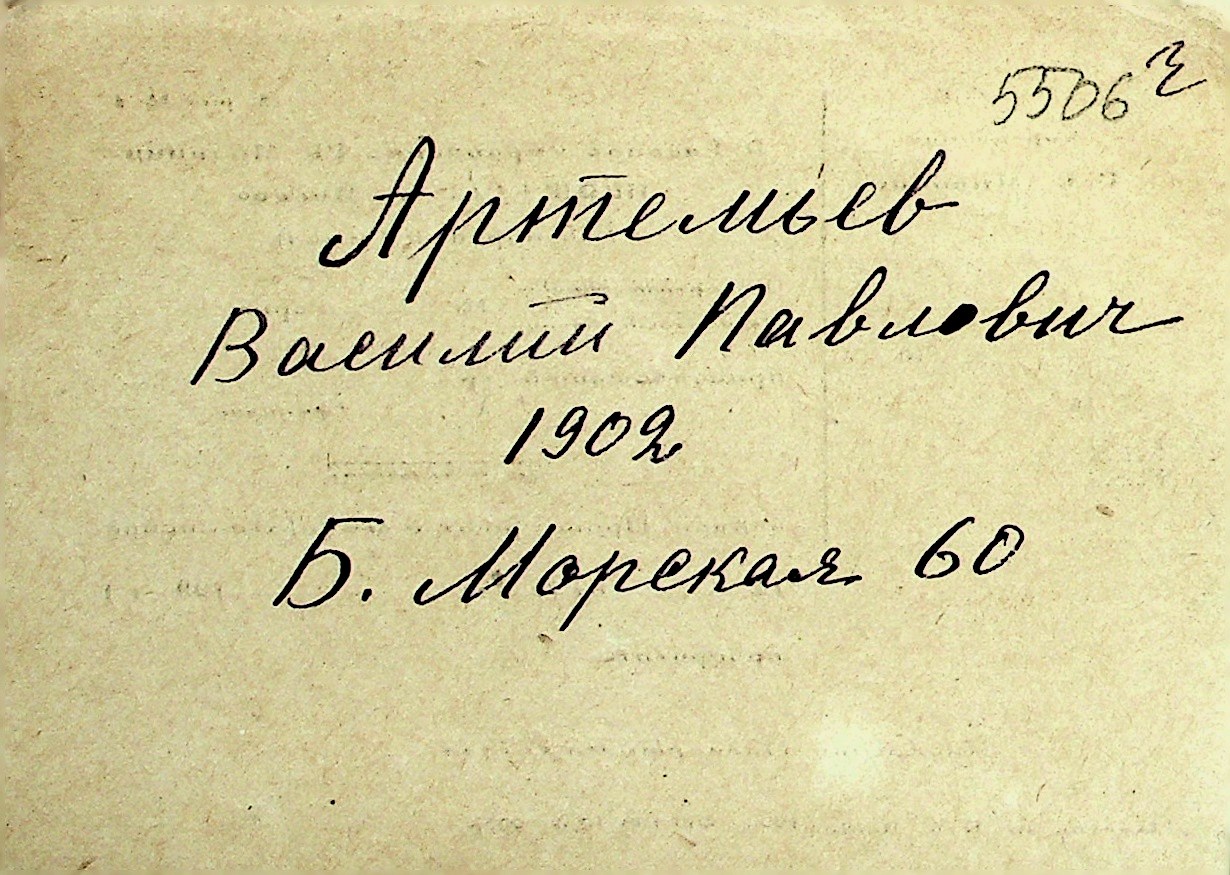 5506
Артемьев
Василий Павлович
1902
Б. Морская 60